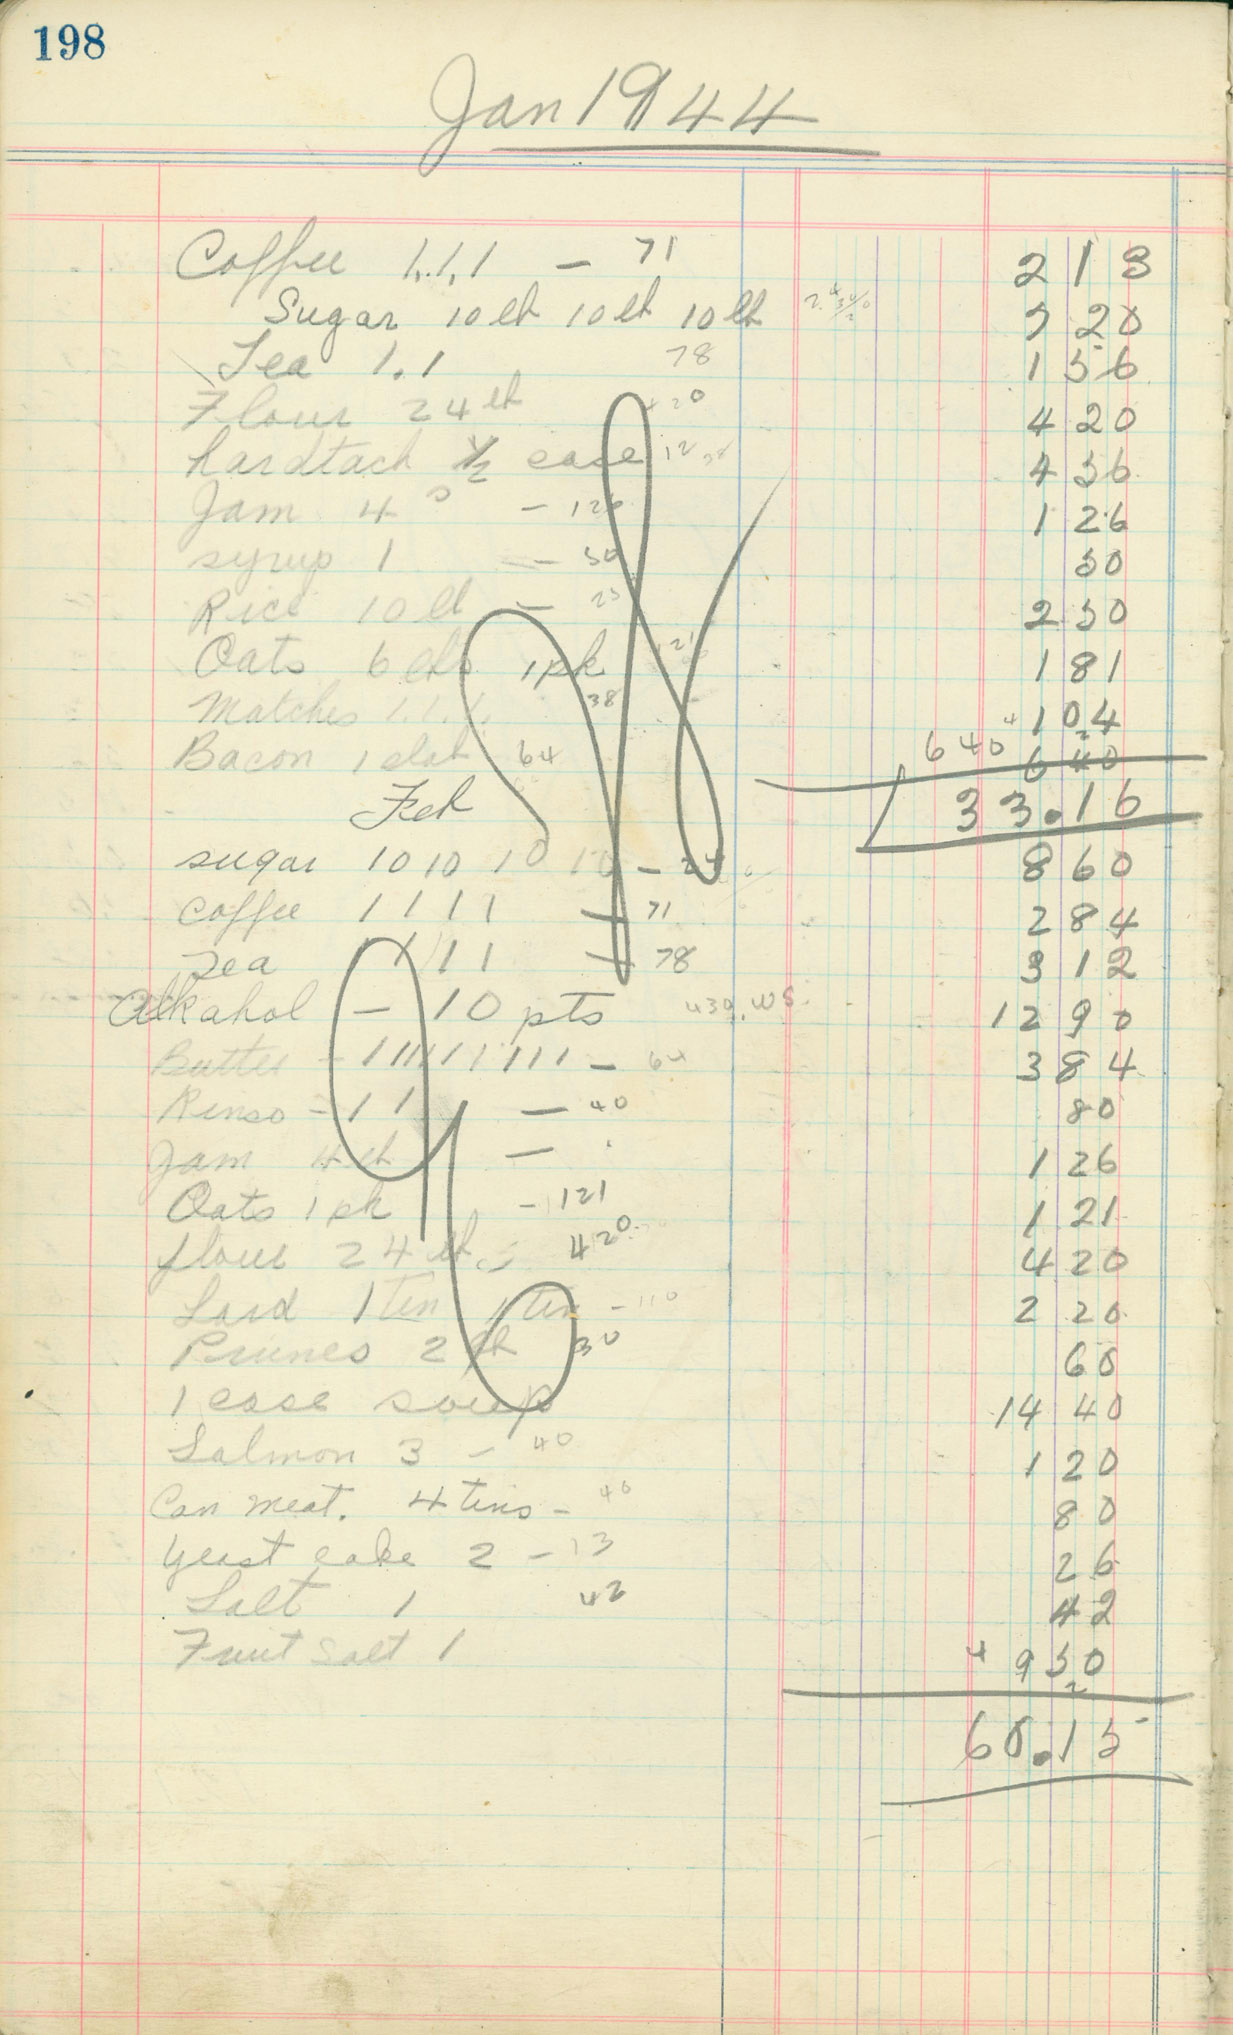 198
Jan 1944
Coffee 1.1.1 — 71 2 13
Sugar 10 lb 10 lb 10 lb 20
Tea 1.1 78 1 56
Flour 24 lb 420 4 20
hardtack ½ case 12 4 56
Jam 4 — 126 1 26
syrup 1 — 50 50
Rice 10 lb — 25 2 50
Oats 6 1 pk 121 1 81
Matches 1.1.1. 38 1 04
Bacon 1 slab 64 640 6 40
Feb 33.16
sugar 10 10 10 10 — 8 60
Coffee 1 1 1 1 — 71 2 84
Tea 1 1 1 1 — 78 3 12
Alkahol — 10 pts 12 90
Butter - 1 1 1 1 1 1 1 1 1 — 64 3 84
Rinso - 1 1 — 40 80
Jam 4 lb — 1 26
Oats 1 pk - 121 1 21
flour 24 lb 420 4 20
Lard 1 tin 1 tin - 110 2 20
Prunes 2 lb 30 60
1 case soup 14 40
Salmon 3 - 40 1 20
Can meat. 4 tins - 40 80
Yeast cake 2 - 13 26
Salt 1 42 42
Fruit salt 1 9 50
60.15